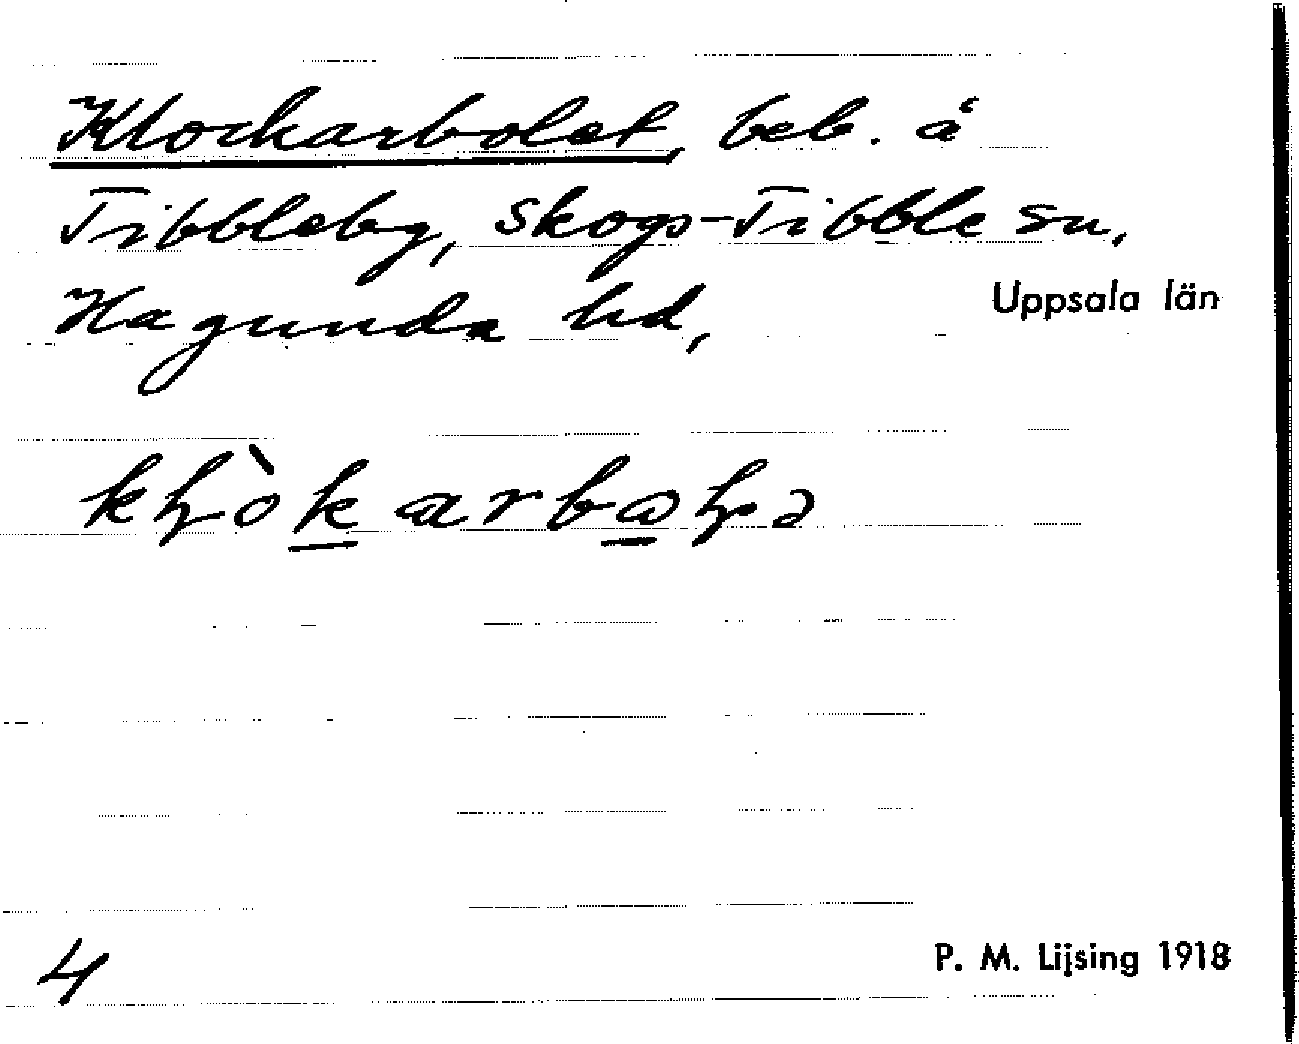 Klockarbolet, beb. å
Tibbleby, Skogs-Tibble sn,
Hagunda hd,
Uppsala län
4
P. M. Lijsing 1918